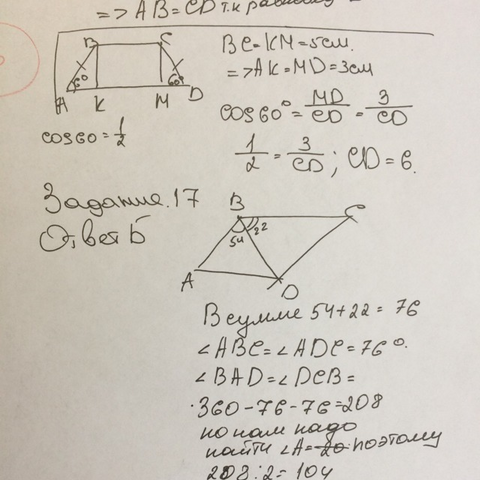 => AB = CD т.к
B C
60° 60°
A K M D
cos60 = 1/2
BC = KM = 5см.
=> AK = MD = 3см
cos60° = MD/CD = 3/CD
1/2 = 3/CD ; CD = 6.
Задание.17
Ответ Б
B C
54 22
A D
В сумме 54+22 = 76
∠ABC = ∠ADC = 76°.
∠BAD = ∠DCB =
360-76-76=208
но нам надо
найти ∠A= поэтому
208:2=104